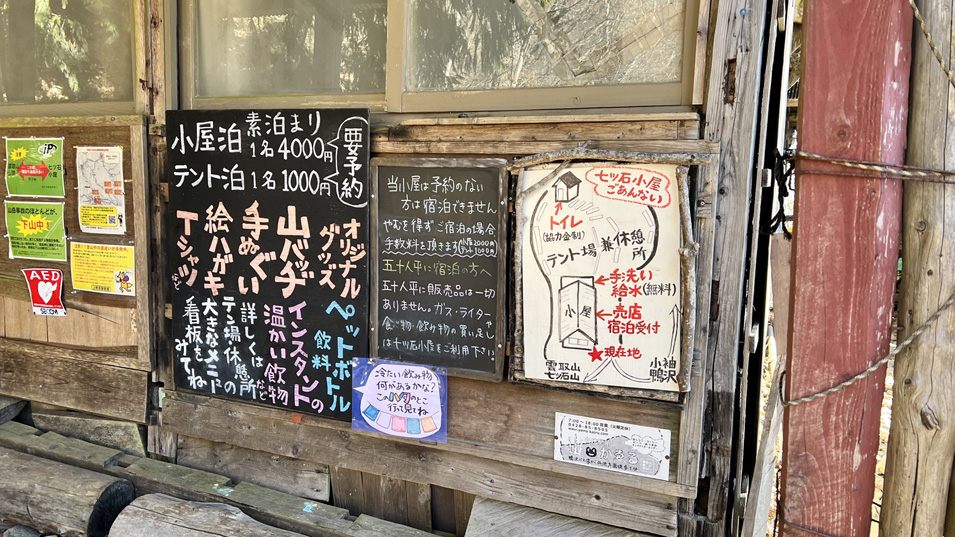 下山中!
AED
小屋泊 素泊まり
1名 4000円
テント泊 1名 1000円
要予約
オリジナル
グッズ
山バッヂ
手ぬぐい
絵ハガキ
Tシャツ
ペットボトル
飲料
インスタントの
温かい飲物
など
詳しくは
テン場休憩所の
大きなメニュー
看板をみてね
当小屋は予約のない
方は宿泊できません
やむを得ずご宿泊の場合
手数料を頂きます
五十人平に宿泊の方へ
五十人平に販売品は一切
ありません。ガス・ライター
食べ物・飲み物の買い足し
は七ツ石小屋をご利用下さい
冷たい飲み物
何があるかな?
このハタのとこ
行って見てね
七ツ石小屋
ごあんない
トイレ
(協力金制)
テント場兼休憩所
手洗い
給水(無料)
小屋
売店
宿泊受付
現在地
雲取山
七ツ石山
小袖
鴨沢